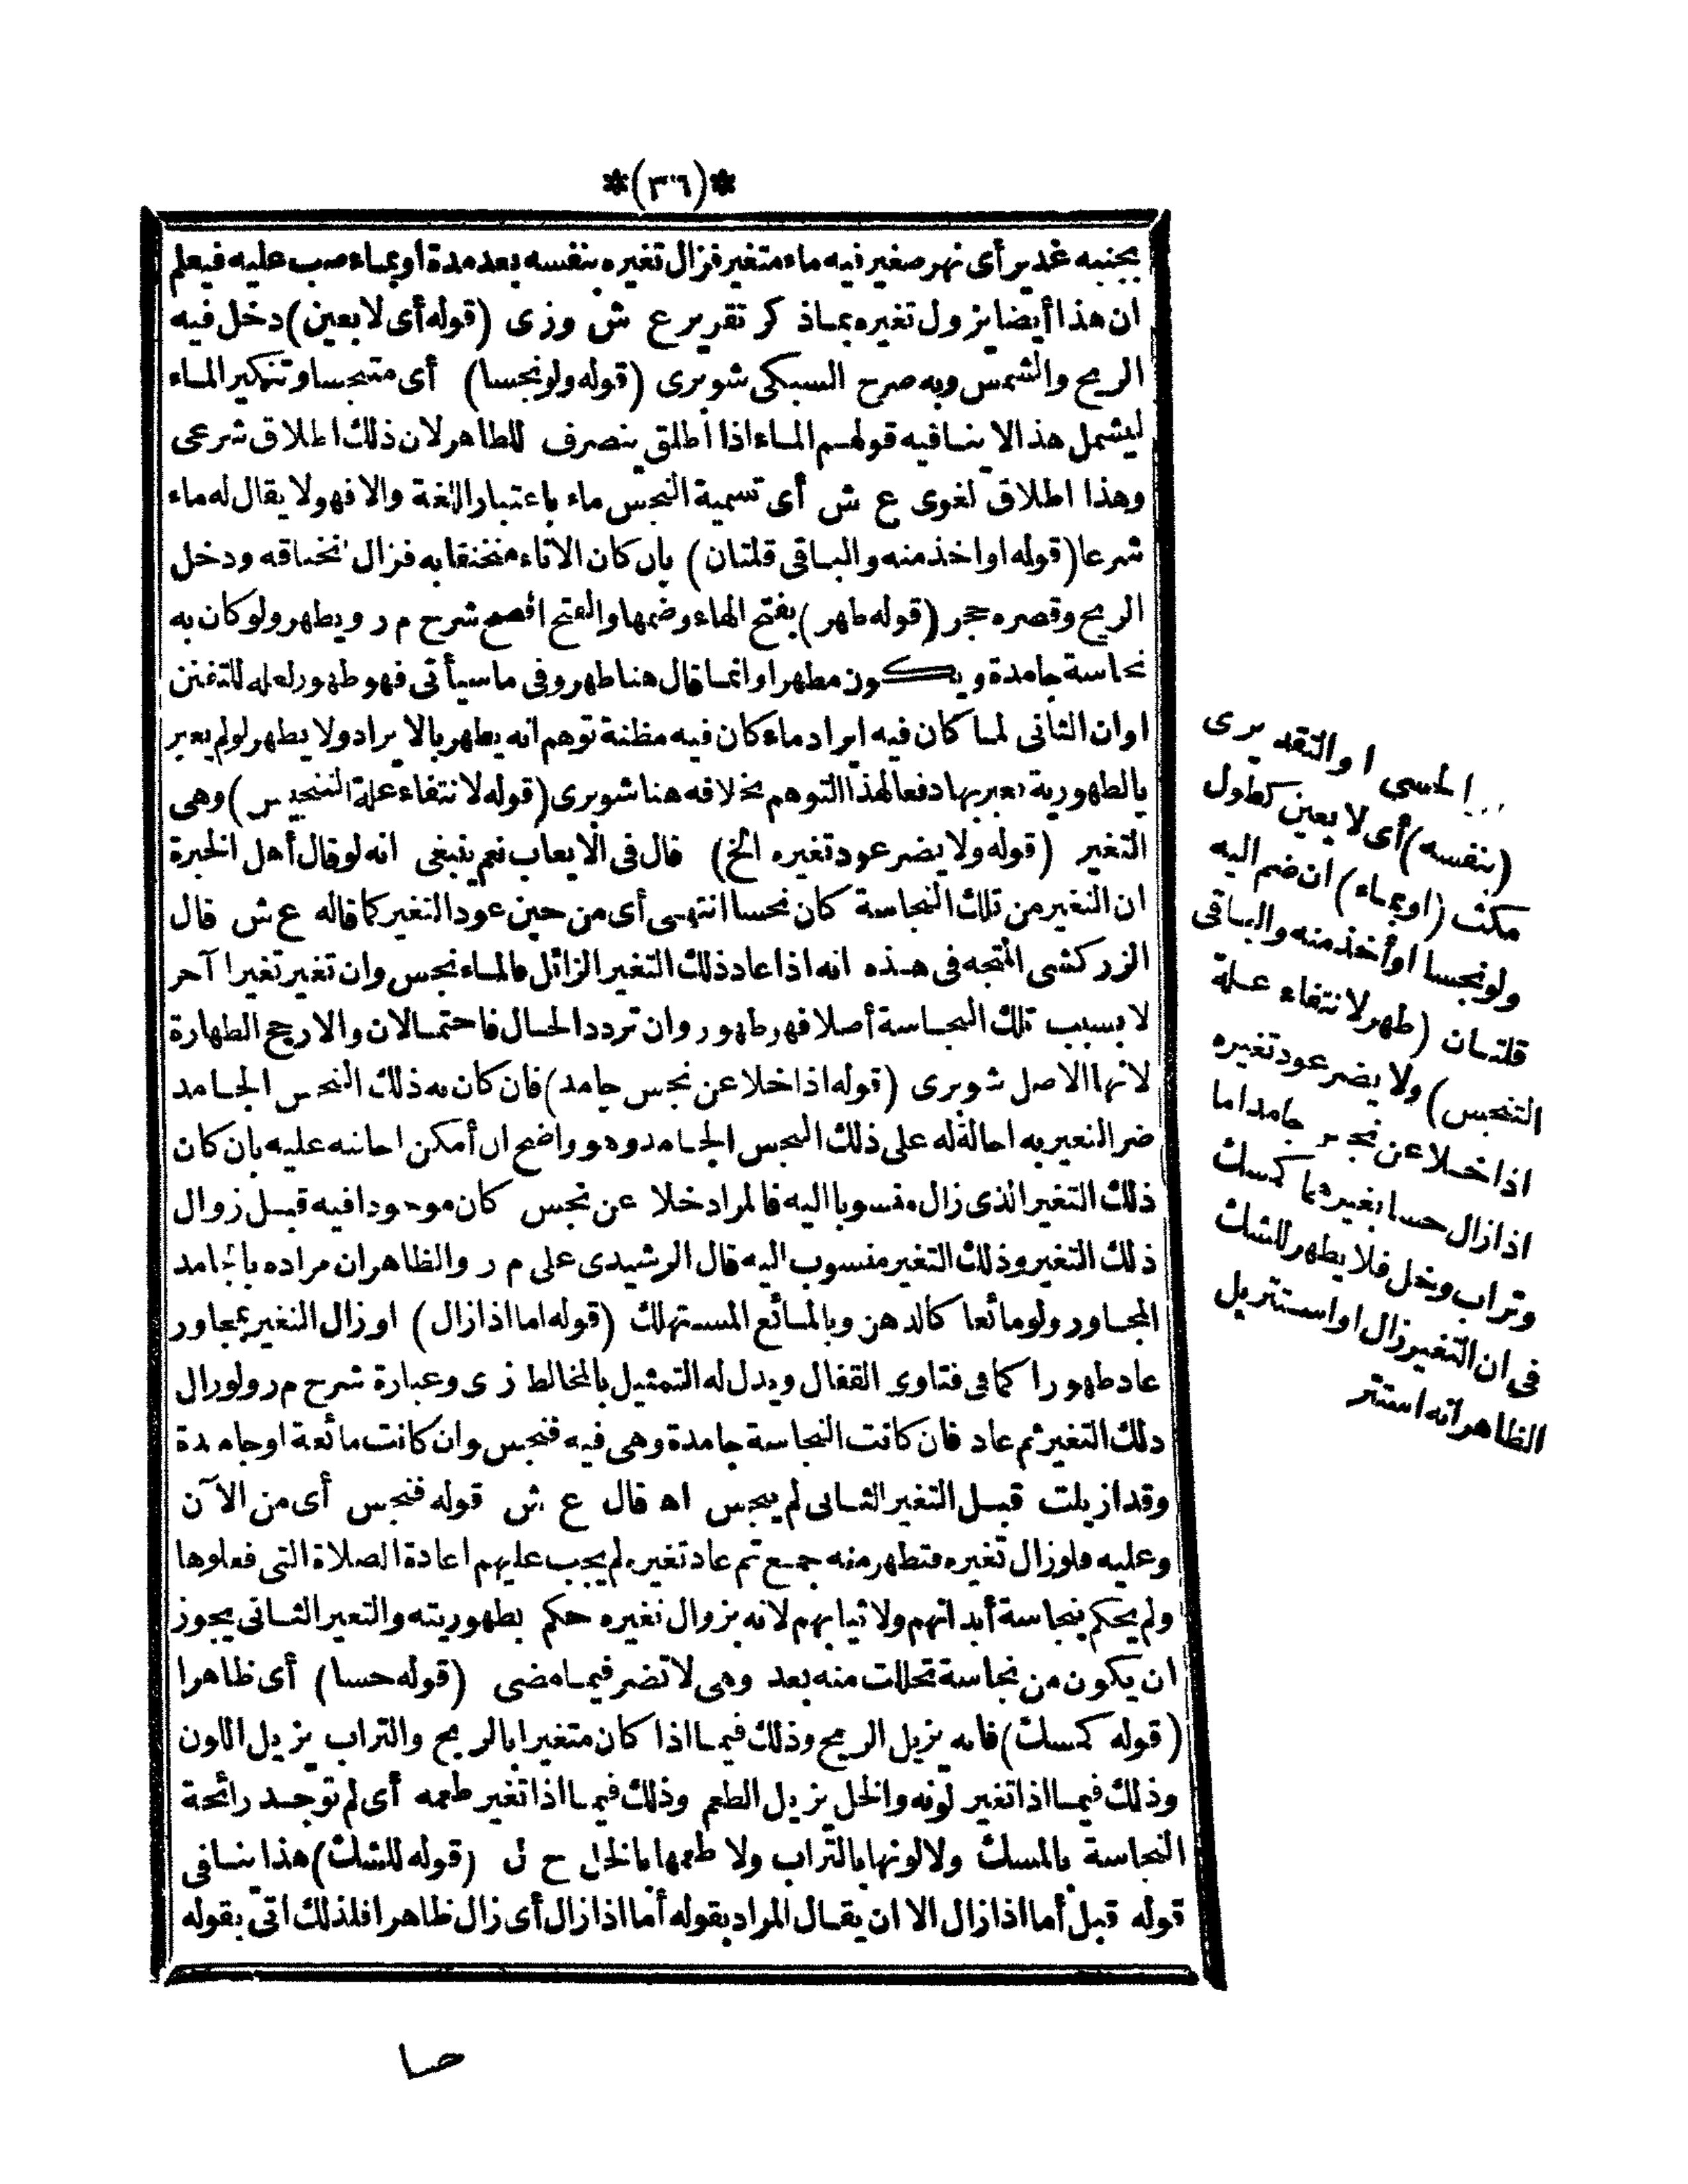 *(٣٦)*
بجنبه غدير أى نهر صغير فيه ماء متغير فزال تغيره بنفسه بعد مدة او بماء صب عليه فيعلم
ان هذا أيضا يزول تغيره بما ذكر تقرير ع ش وزى (قوله أى لا بعين) دخل فيه
الريح والشمس وبه صرح السبكى شوبرى (قوله ولو نجسا) أى متنجسا وتنكير الماء
ليشمل هذا لا ينافيه قولهم الماء اذا أطلق ينصرف للطاهر لان ذلك اطلاق شرعى
وهذا اطلاق لغوى ع ش أى تسمية النجس ماء باعتبار اللغة والا فهو لا يقال له ماء
شرعا (قوله او اخذ منه والباقى قلتان) بان كان الاناء منخنقا به فزال انخناقه ودخل
الريح وقصره حجر (قوله طهر) بفتح الهاء وضمها والفتح افصح شرح م ر ويطهر ولو كان به
نجاسة جامدة ويكون مطهرا وانما قال هنا طهر وفى ما سيأتى فهو طهور لعله للتفنن
او ان الثانى لما كان فيه ايراد ماء كان فيه مظنة توهم انه يطهر بالايراد ولا يطهر لو لم يعبر
بالطهورية فعبر بها دفعا لهذا التوهم بخلافه هنا شوبرى (قوله لانتفاء علة التنجيس) وهى
التغير (قوله ولا يضر عود تغيره الخ) قال فى الايعاب نعم ينبغى انه لو قال أهل الخبرة
ان التغير من تلك النجاسة كان نجسا انتهى أى من حين عود التغير كما قاله ع ش قال
الزركشى المتجه فى هذه انه اذا عاد ذلك التغير الزائل فالماء نجس وان تغير تغيرا آخر
لا بسبب تلك النجاسة أصلا فهو طهور وان تردد الحال فاحتمالان والارجح الطهارة
لانها الاصل شوبرى (قوله اذا خلا عن نجس جامد) فان كان به ذلك النجس الجامد
ضر التغير به احالة له على ذلك النجس الجامد وهو واضح ان أمكن احالته عليه بان كان
ذلك التغير الذى زال منسوبا اليه فالمراد خلا عن نجس كان موجودا فيه قبل زوال
ذلك التغير وذلك التغير منسوب اليه قال الرشيدى على م ر والظاهر ان مراده بالجامد
المجاور ولو مائعا كالدهن وبالمائع المستهلك (قوله اما اذا زال) او زال التغير بمجاور
عاد طهورا كما فى فتاوى القفال ويدل له التمثيل بالمخالط زى وعبارة شرح م ر ولو زال
ذلك التغير ثم عاد فان كانت النجاسة جامدة وهى فيه فنجس وان كانت مائعة او جامدة
وقد ازيلت قبل التغير الثانى لم ينجس اه قال ع ش قوله فنجس أى من الآن
وعليه فلو زال تغيره فتطهر منه جمع ثم عاد تغيره لم يجب عليهم اعادة الصلاة التى فعلوها
ولم يحكم بنجاسة أبدانهم ولا ثيابهم لانه بزوال تغيره حكم بطهوريته والتغير الثانى يجوز
ان يكون من نجاسة تحللت منه بعد وهى لا تضر فيما مضى (قوله حسا) أى ظاهرا
(قوله كمسك) فانه يزيل الريح وذلك فيما اذا كان متغيرا بالريح والتراب يزيل اللون
وذلك فيما اذا تغير لونه والخل يزيل الطعم وذلك فيما اذا تغير طعمه أى لم توجد رائحة
النجاسة بالمسك ولا لونها بالتراب ولا طعمها بالخل ح ل (قوله للشك) هذا ينافى
قوله قبل أما اذا زال الا ان يقال المراد بقوله أما اذا زال أى زال ظاهرا فلذلك اتى بقوله
حسا
الحسى او التقديرى
(بنفسه) أى لا بعين كطول
مكث (او بماء) ان ضم اليه
ولو نجسا او أخذ منه والباقى
قلتان (طهر لانتفاء علة
التنجس) ولا يضر عود تغيره
اذا خلا عن نجس جامد اما
اذا زال حسا بغيرهما كمسك
وتراب وخل فلا يطهر للشك
فى ان التغير زال او استتر بل
الظاهر انه استتر